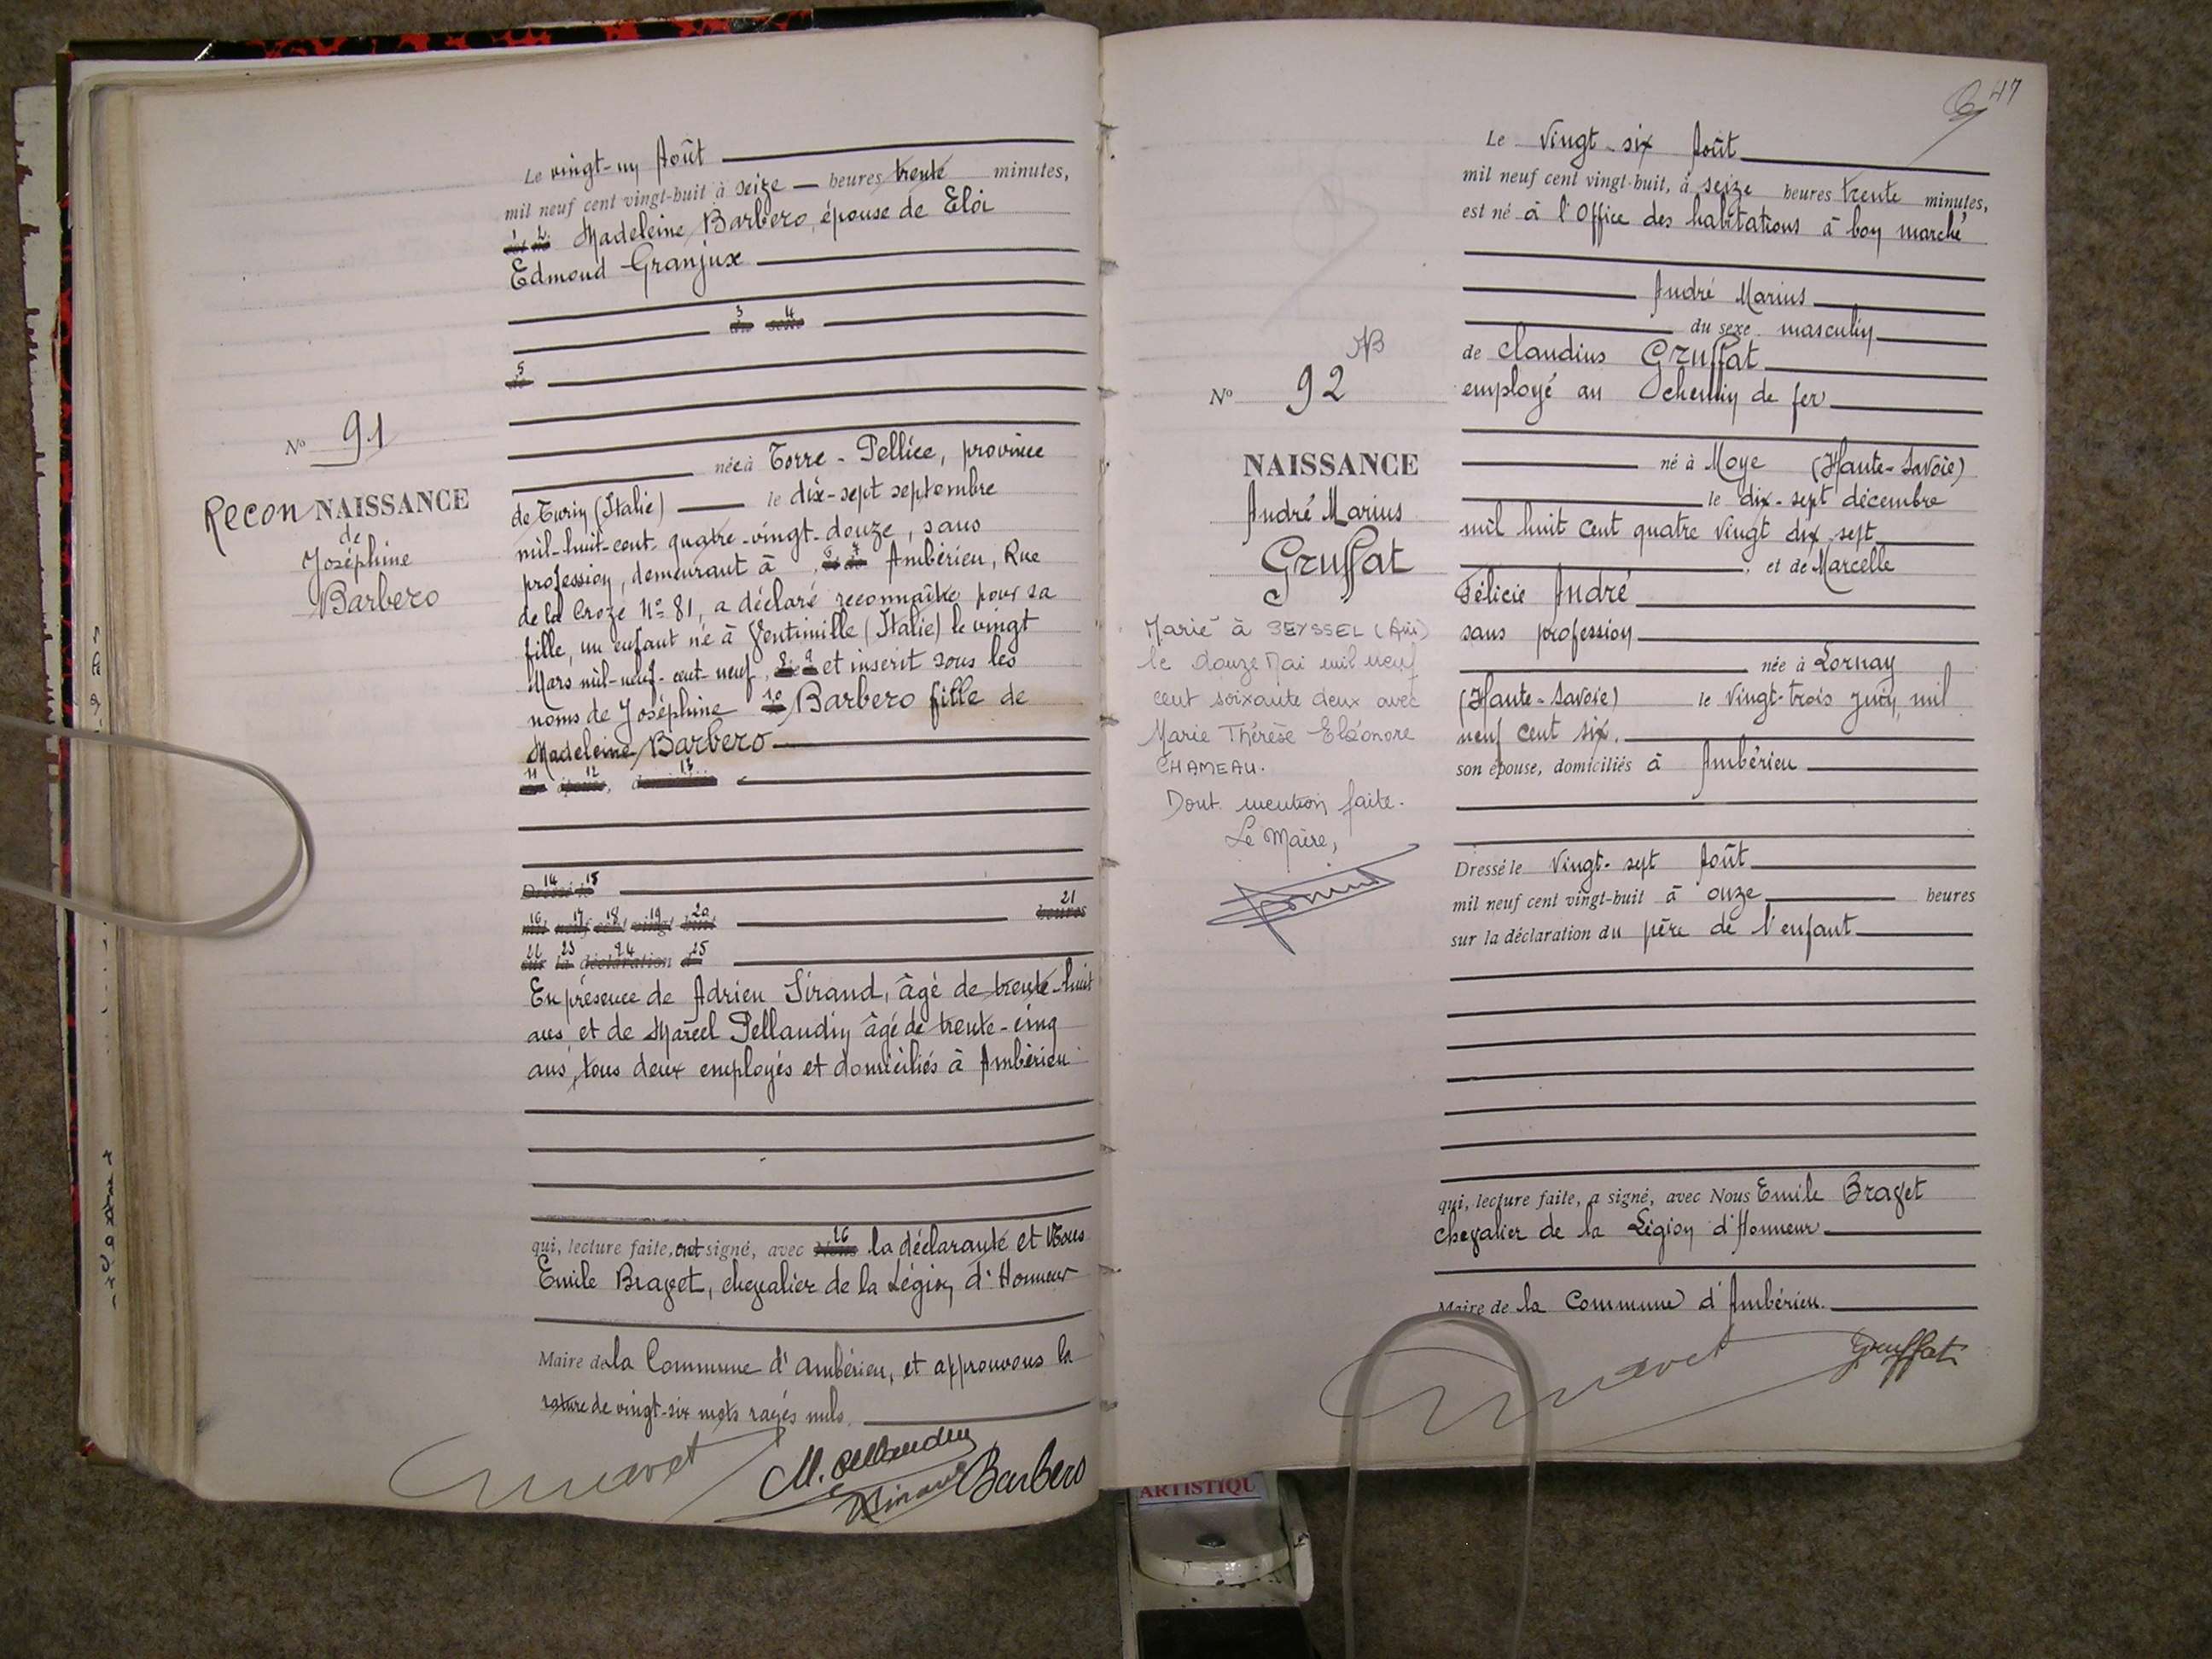 Le vingt-un Août
mil neuf cent vingt-huit à seize heures trente minutes,
Madeleine Barbero, épouse de Eloi
Edmond Granjux
3 4
5
N° 91
ReconNAISSANCE
de
Joséphine
Barbero
née à Torre-Pellice, province
de Turin (Italie) le dix-sept septembre
mil-huit-cent-quatre-vingt-douze, sans
profession, demeurant à Ambérieu, Rue
de la Croze N° 81, a déclaré reconnaître pour sa
fille, un enfant né à Ventimille (Italie) le vingt
Mars mil-neuf-cent-neuf, et inscrit sous les
noms de Joséphine Barbero fille de
Madeleine Barbero
11 12 13
14 15
Dressé le
16 17 18 19 20 21
mil neuf cent vingt huit heures
22 23 24 25
sur la déclaration d
En présence de Adrien Sirand, âgé de trente-huit
ans et de Marcel Pellaudin âgé de trente-cinq
ans, tous deux employés et domiciliés à Ambérieu
qui, lecture faite, ont signé, avec 26 la déclarante et Nous
Emile Bravet, chevalier de la Légion d'Honneur
Maire de la Commune d'Ambérieu, et approuvons la
rature de vingt-six mots rayés nuls.
Barbero
47
Le Vingt-six Août
mil neuf cent vingt-huit, à seize heures trente minutes,
est né à l'Office des habitations à bon marché
André Marius
du sexe masculin
de Claudius Gruffat
employé au chemin de fer
né à Moye (Haute-Savoie)
le dix-sept décembre
mil huit cent quatre vingt dix sept
et de Marcelle
Félicie André
sans profession
née à Lornay
(Haute-Savoie) le Vingt-trois Juin, mil
neuf cent six.
son épouse, domiciliés à Ambérieu
Dressé le Vingt-sept Août
mil neuf cent vingt-huit à onze heures
sur la déclaration du père de l'enfant
qui, lecture faite, a signé, avec Nous Emile Bravet
Chevalier de la Légion d'Honneur
Maire de la Commune d'Ambérieu.
Gruffat
N° 92
NAISSANCE
André Marius
Gruffat
Marié à SEYSSEL (Ain)
le douze Mai mil neuf
cent soixante deux avec
Marie Thérèse Eléonore
CHAMEAU.
Dont mention faite.
Le Maire,
ARTISTIQU